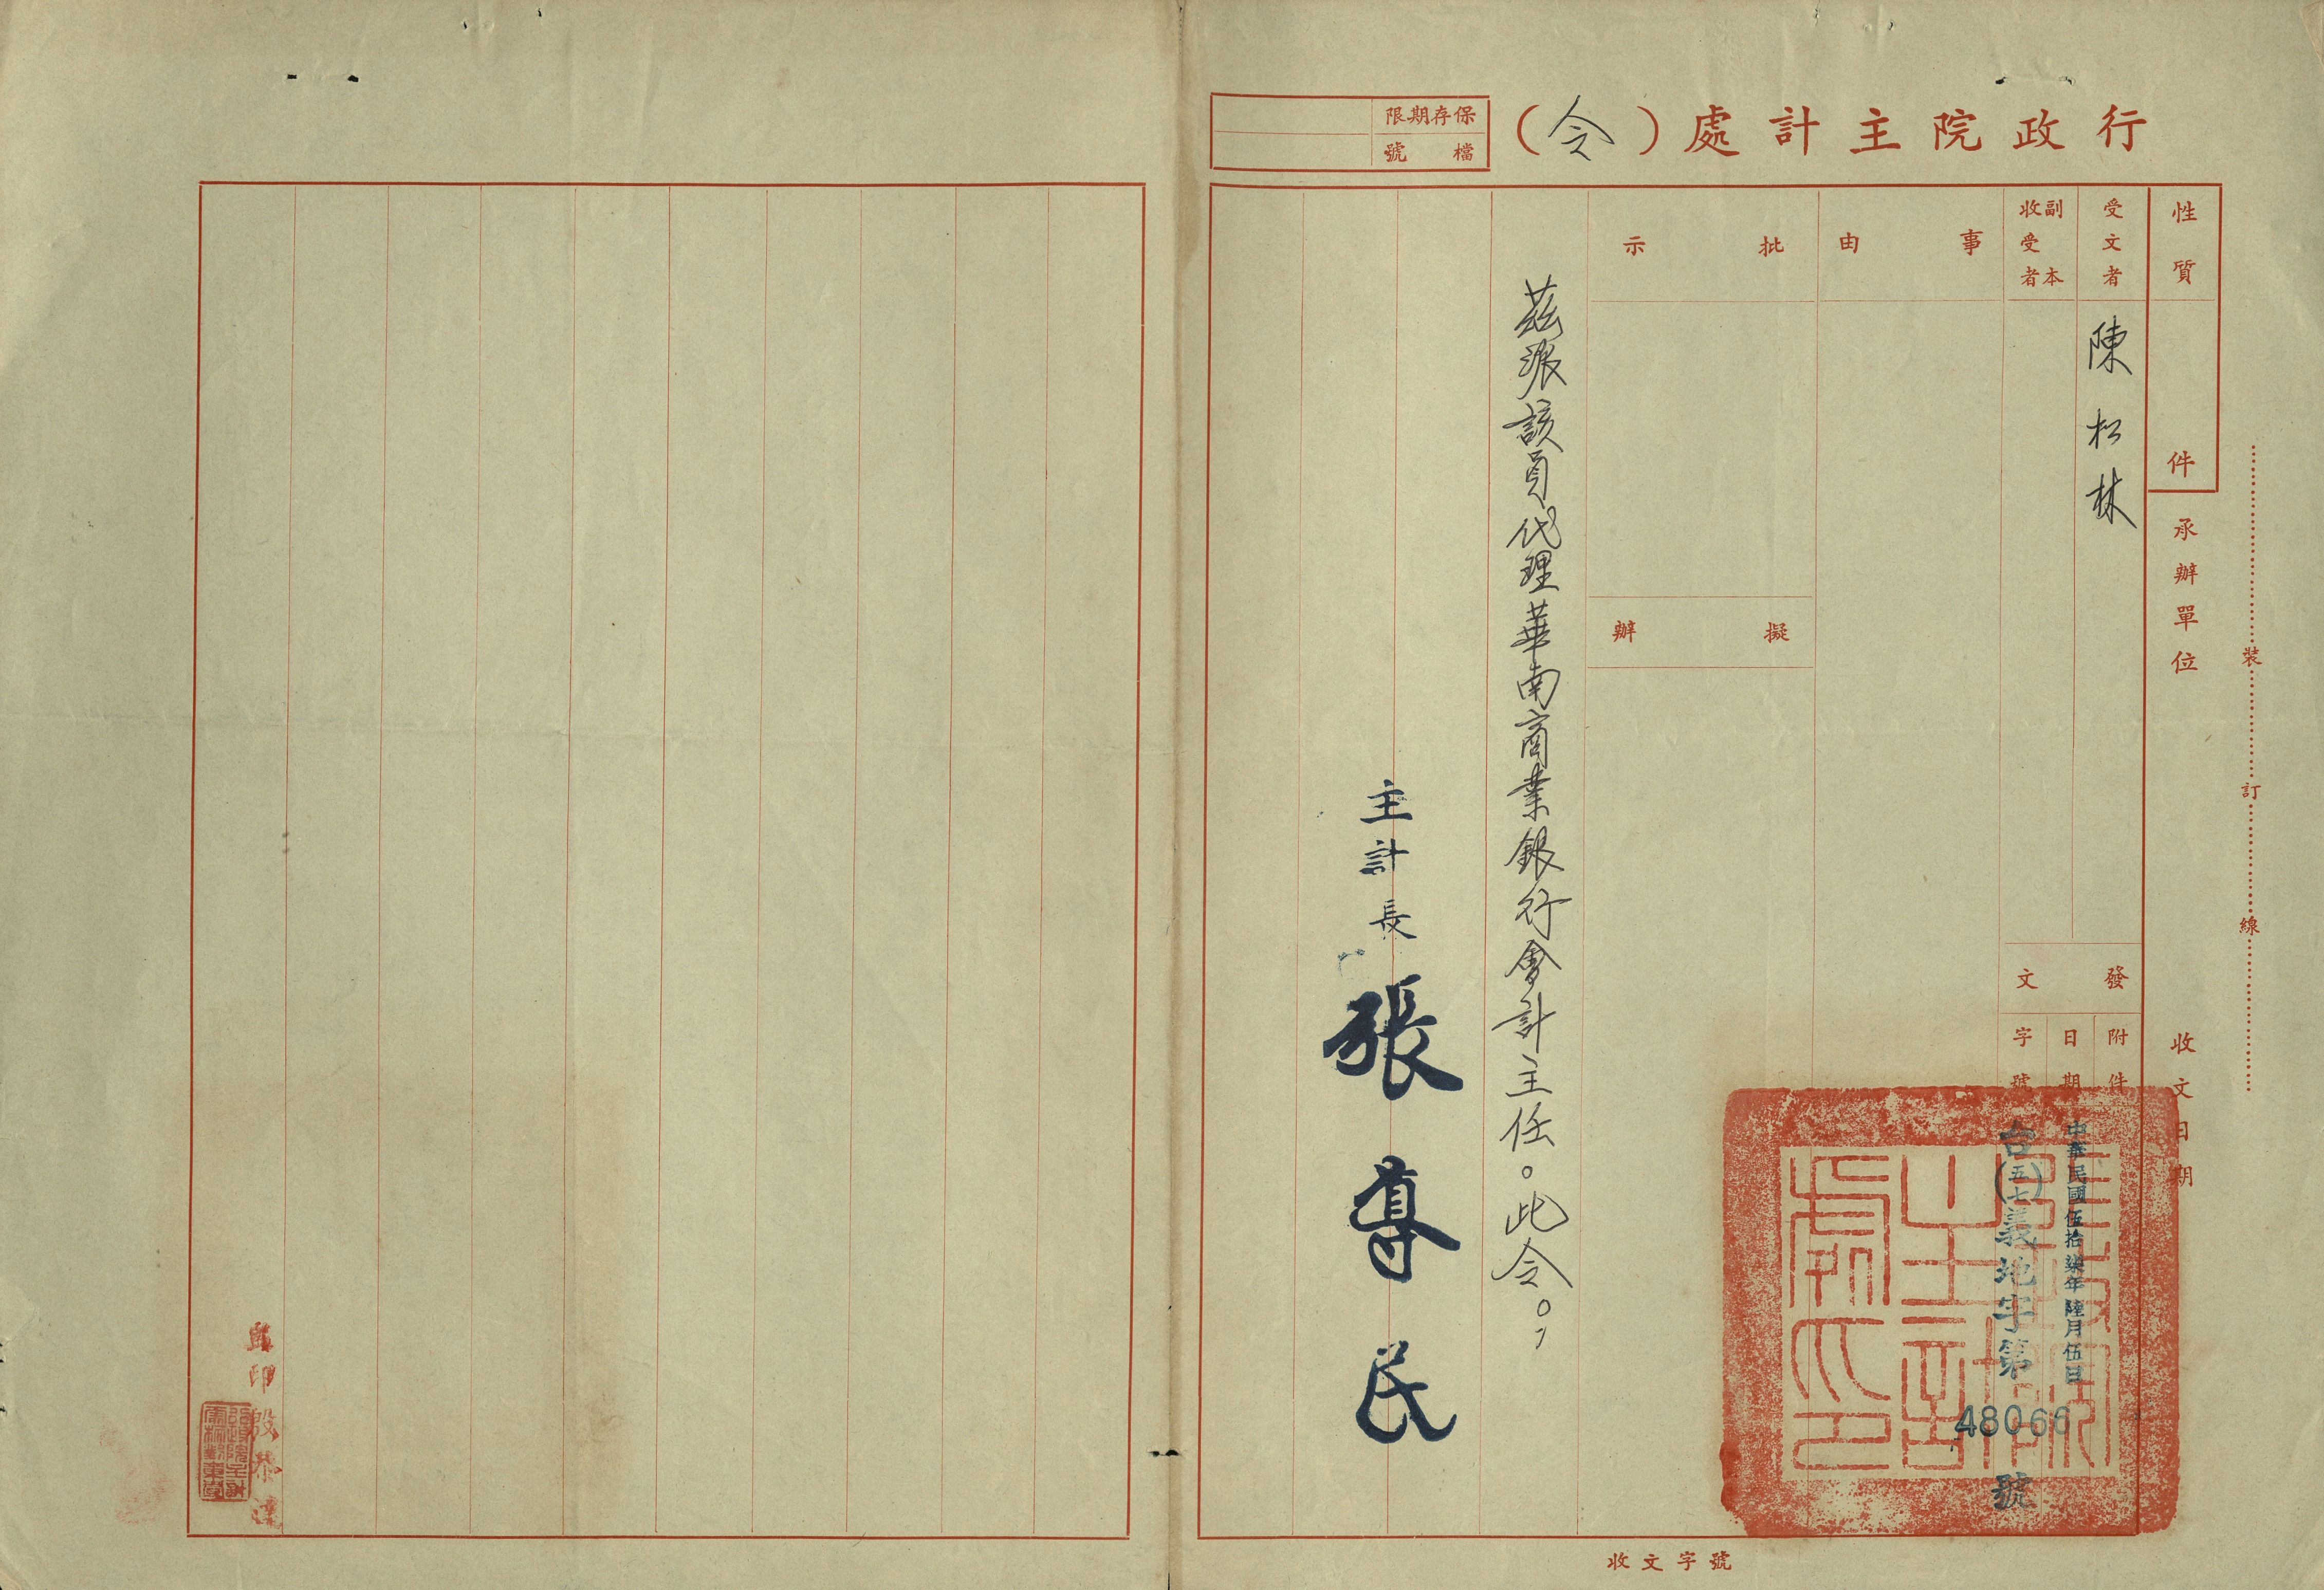 行政院主計處（令）
保存期限
檔號
性質
件
承辦單位
收文日期
裝訂線
受文者
陳松林
副本收受者
發文
附件
日期
中華民國伍拾柒年陸月伍日
字號
台(五七)義地字第48066號
事由
批示
擬辦
茲派該員代理華南商業銀行會計主任。此令。
主計長 張導民
收文字號
行政院主計處印